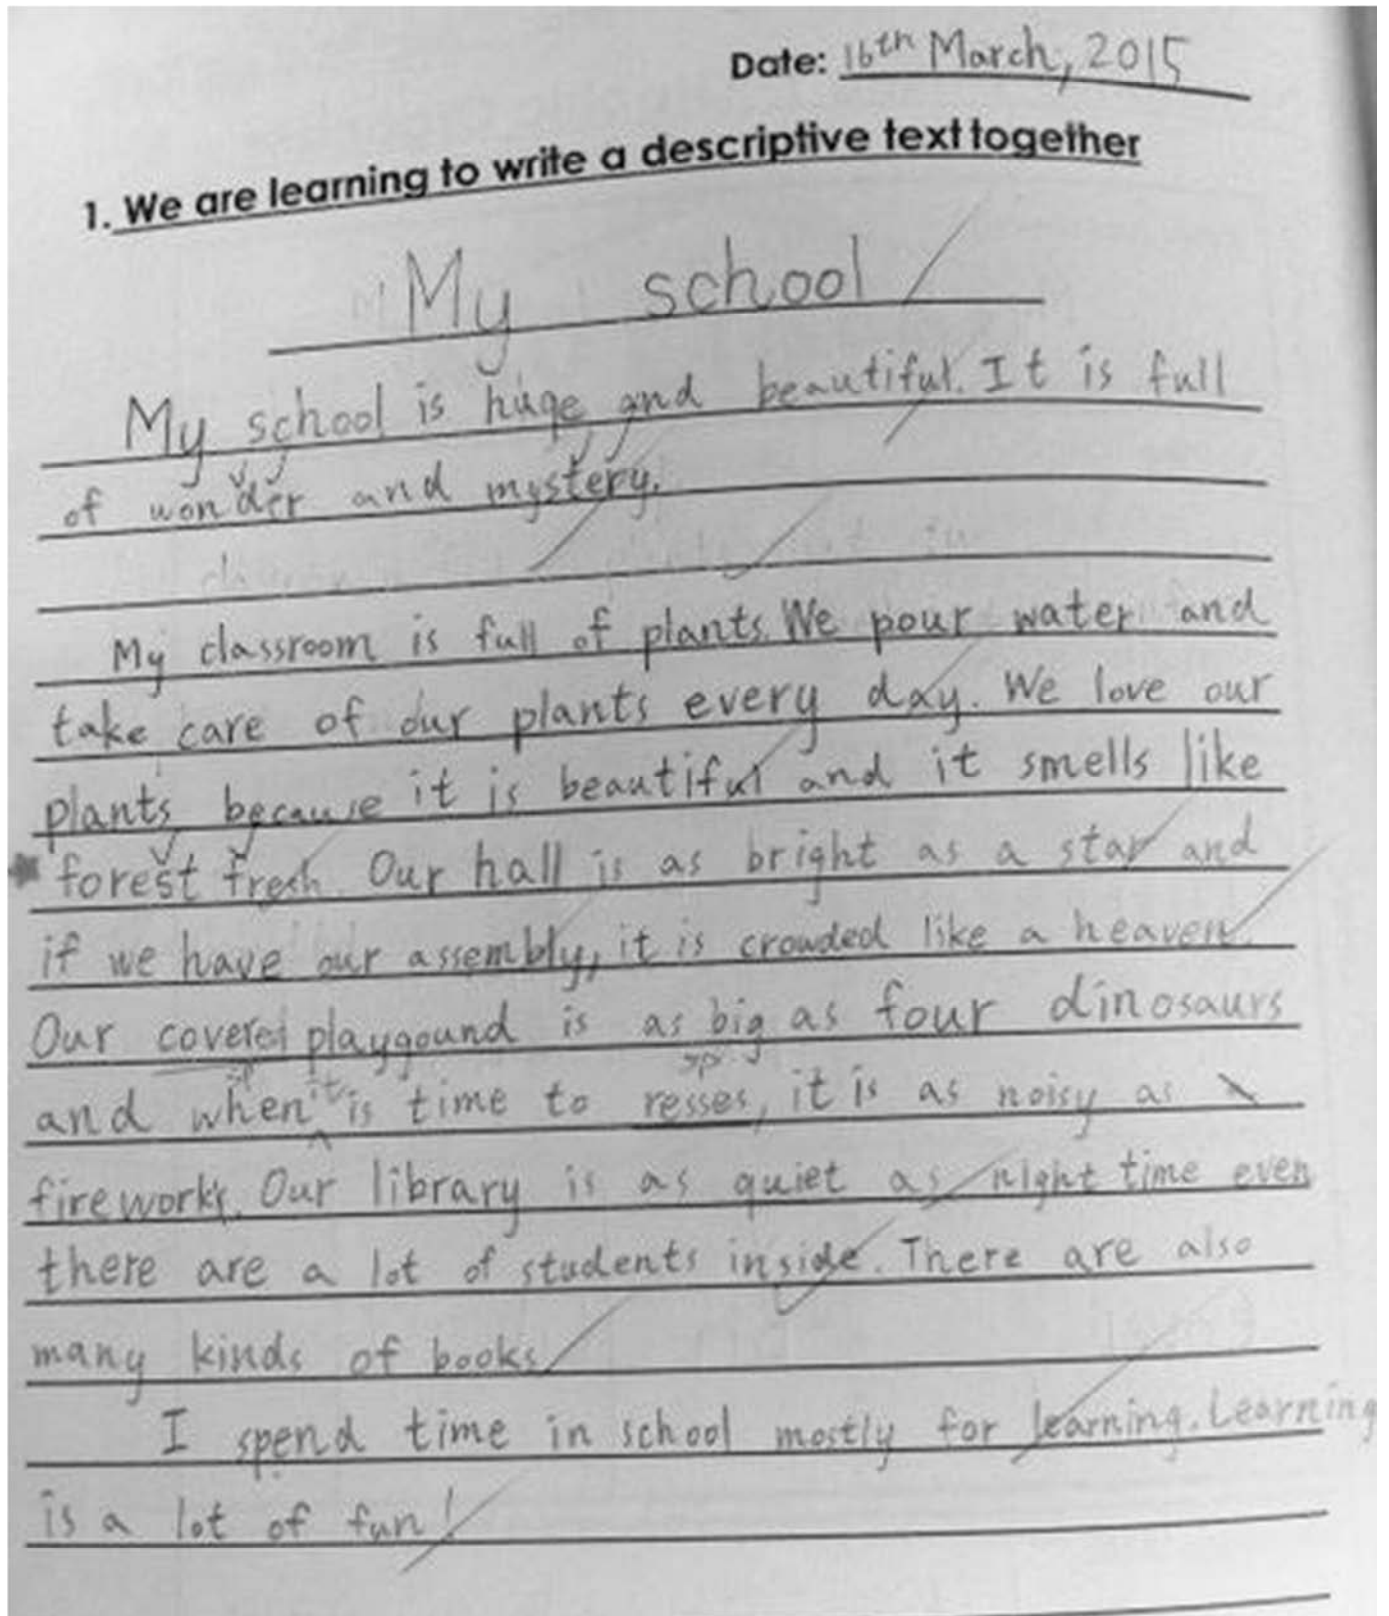 Date: 16th March, 2015
1. We are learning to write a descriptive text together
My school
My school is huge and beautiful. It is full
of wonder and mystery.
My classroom is full of plants. We pour water and
take care of our plants every day. We love our
plants because it is beautiful and it smells like
forest fresh. Our hall is as bright as a star and
if we have our assembly, it is crowded like a heaven.
Our covered playgound is as big as four dinosaurs
sp it sp
and when is time to resses, it is as noisy as
fireworks. Our library is as quiet as night time even
there are a lot of students inside. There are also
many kinds of books.
I spend time in school mostly for learning. Learning
is a lot of fun!